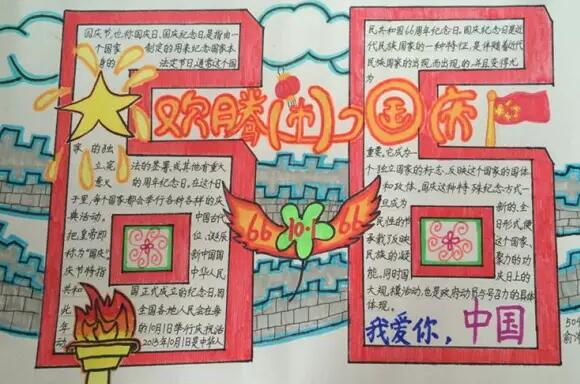 国庆节,也称国庆日、国庆纪念日,是指由一
个国家 制定的用来纪念国家本
身的 法定节日,通常这个国
欢腾 国庆
家的独
立、宪 法的签署,或其他有重大
意义 的周年纪念日,在这个日
子里,每个国家都会举行各种各样的庆
典活动。 中国古代
把皇帝即 位、诞辰
称为"国庆" 新中国国
庆节特指 中华人民
共和 国正式成立的纪念日,因
此 全国各地人民会在每
年 的10月1日举行庆祝活
动 2015年10月1日是中华人
民共和国66周年纪念日。国庆纪念日是近
代民族国家的一种特征,是伴随着近代
民族国家的出现而出现的,并且变得尤
为
重要。它成为
一个独立国家的标志,反映这个国家的国体
和政体。国庆这种特殊纪念方式一
旦成为 新的、全
民性的节 日形式,便
承载了反映 这个国家、
民族的凝 聚力的功
能。同时国 庆日上的
大规模活动,也是政府动员与号召力的具体
体现。
66 10·1 66
我爱你,中国